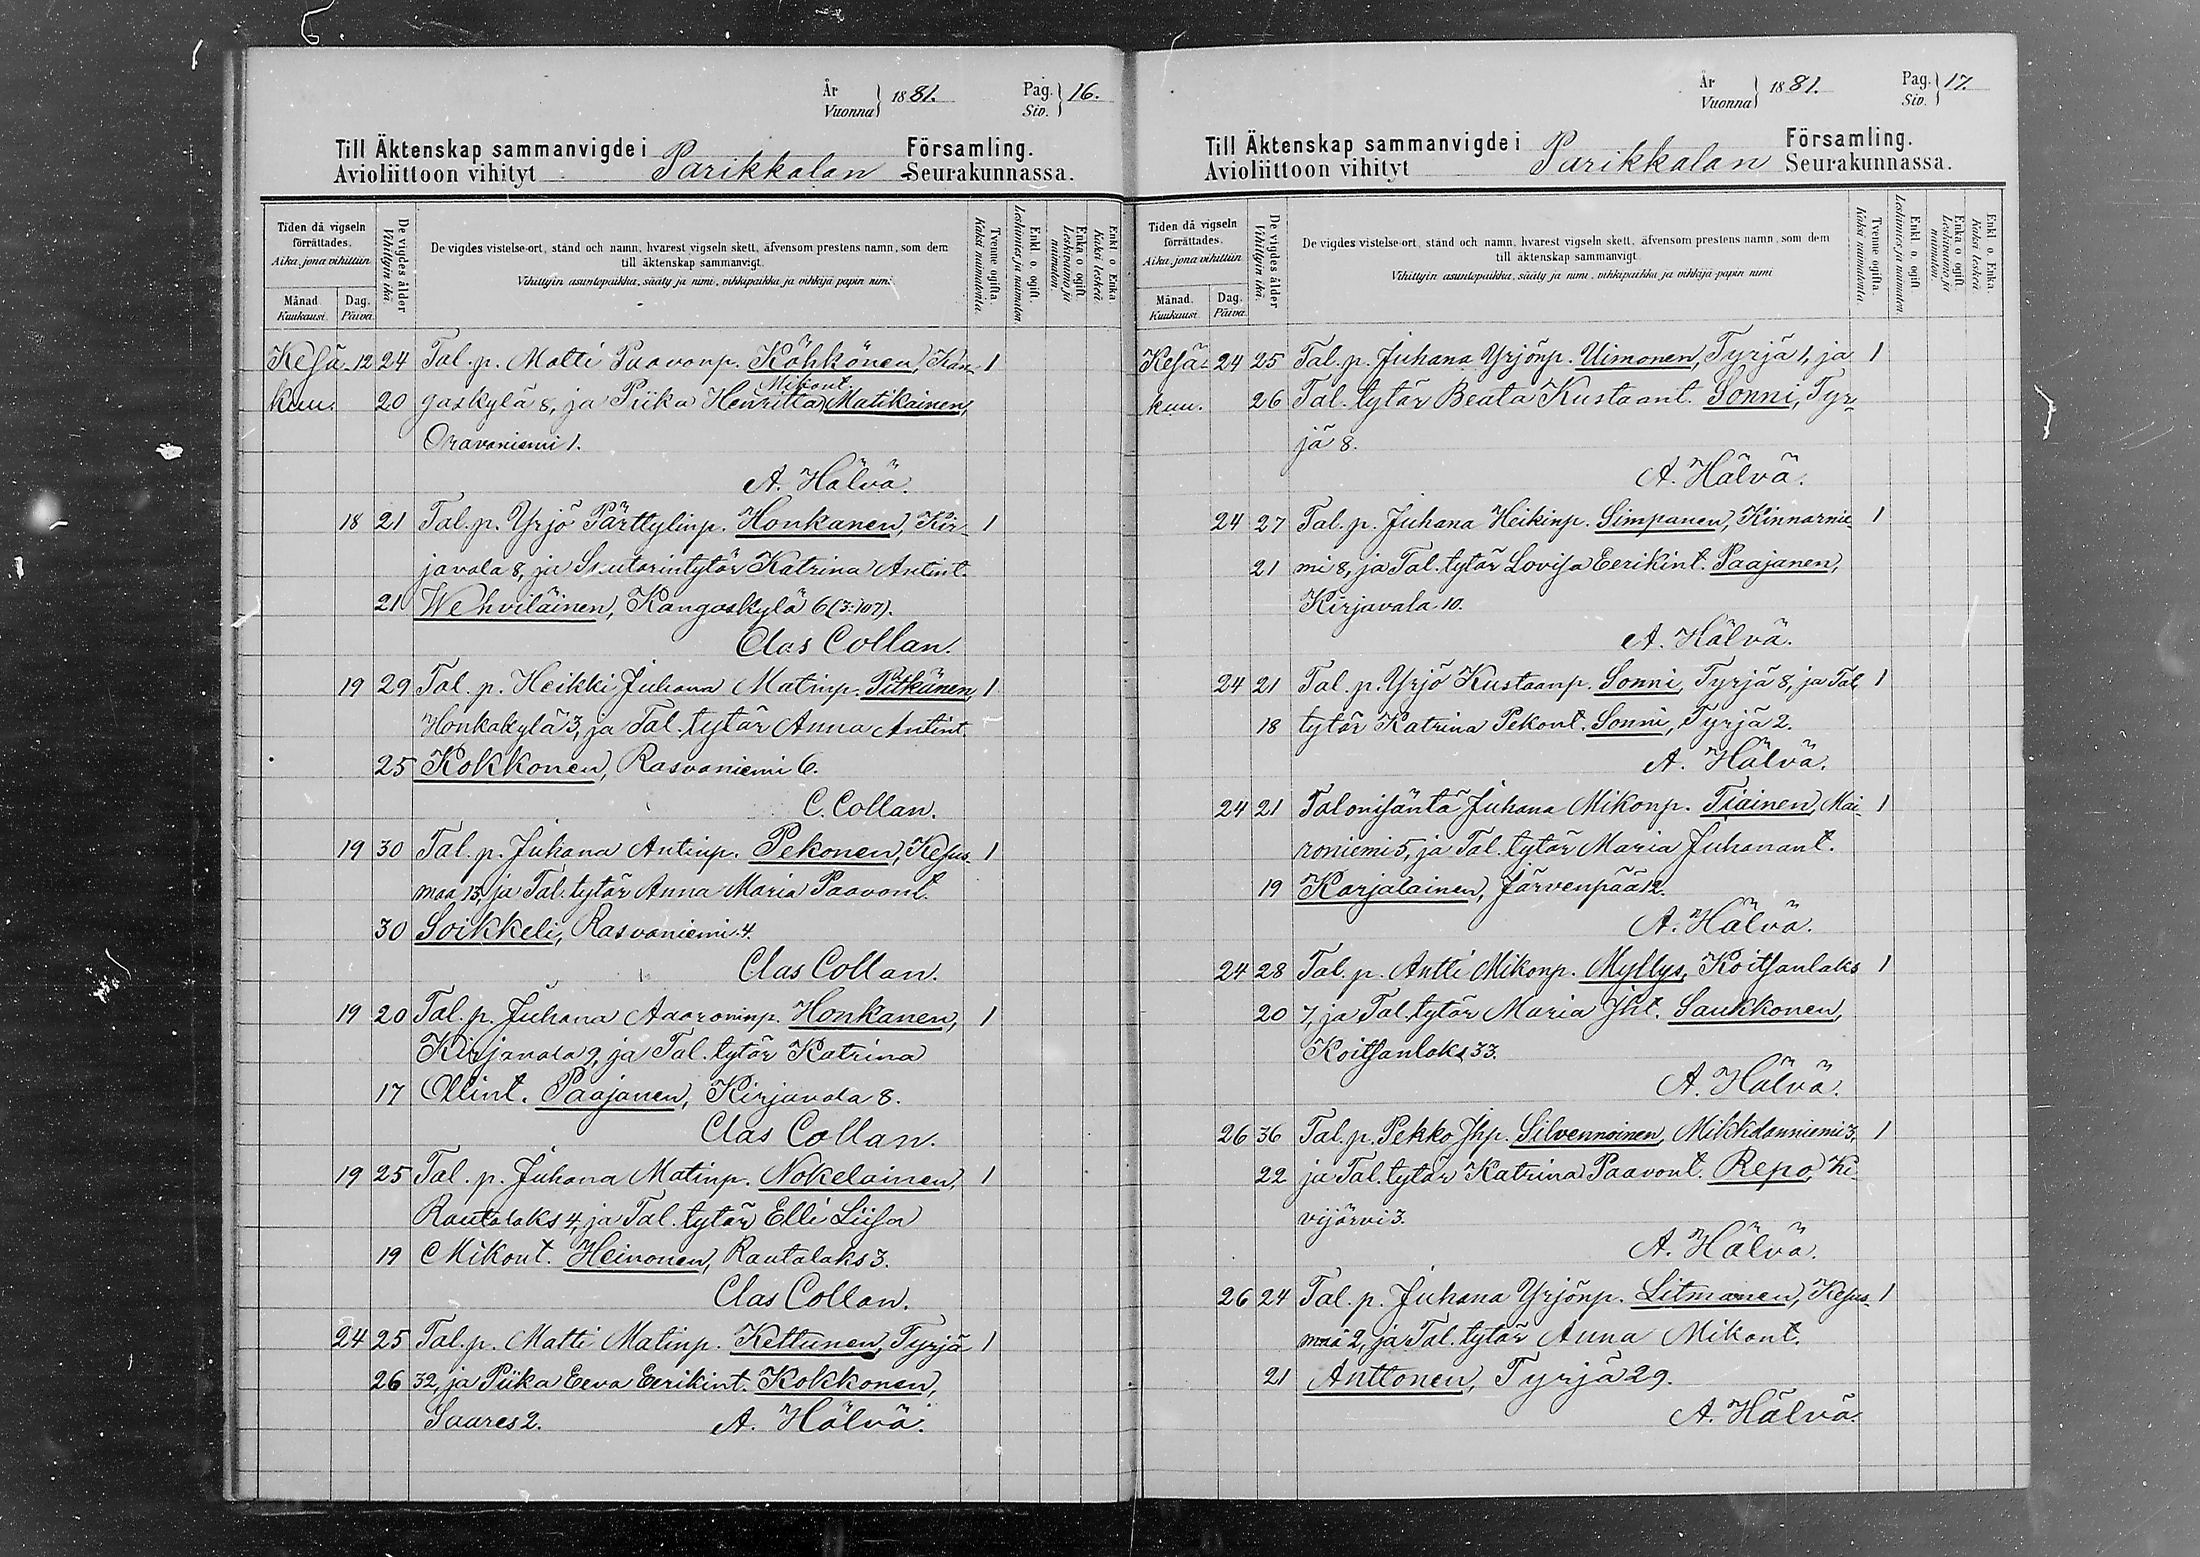 År
Vuonna } 1881.
Pag.
Siv. } 16.
Till Äktenskap sammanvigde i Parikkalan Församling.
Avioliittoon vihityt Seurakunnassa.
Tiden då vigseln förrättades.
Aika, jona vihittiin
Månad. Kuukausi.
Dag. Päivä
De vigdes ålder
Vihittyin ikä
De vigdes vistelse-ort, stånd och namn, hvarest vigseln skett, äfvensom prestens namn, som dem
till äktenskap sammanvigt.
Vihittyin asuntopaikka, sääty ja nimi, vihkipaikka ja vihkijä papin nimi.
Tvenne ogifta.
Kaksi naimatonta.
Enkl. o. ogift.
Leskimies ja naimaton.
Enka o ogift
Leskivaimo ja naimaton.
Enkl o Enka
Kaksi leskeä
Kesä- 12 24 Tal. p. Matti Paavonp. Köhkönen, Kan- 1
kuu. 20 gaskylä 8, ja Piika Henritta Mikont. Matikainen,
Oravaniemi 1.
A. Hälvä.
18 21 Tal. p. Yrjö Pärttylinp. Honkanen, Kir- 1
javala 8, ja Skutarintytär Katrina Antint.
21 Wehviläinen, Kangaskylä 6 (3:107).
Clas Collan.
19 29 Tal. p. Heikki Juhana Matinp. Pitkänen, 1
Honkakylä 3, ja Tal. tytär Anna Antint.
25 Kokkonen, Rasvaniemi 6.
C. Collan.
19 30 Tal. p. Juhana Antinp. Pekonen, Kesus- 1
maa 13, ja Tal. tytär Anna Maria Paavont.
30 Soikkeli, Rasvaniemi 4.
Clas Collan.
19 20 Tal. p. Juhana Aaroninp. Honkanen, 1
Kirjavala 9, ja Tal. tytär Katrina
17 Ollint. Paajanen, Kirjavala 8.
Clas Collan.
19 25 Tal. p. Juhana Matinp. Nokelainen, 1
Rautalaks 4, ja Tal. tytär Elli Liisa
19 Mikont. Heinonen, Rautalaks 3.
Clas Collan.
24 25 Tal. p. Matti Matinp. Kettunen, Tyrjä 1
26 32, ja Piika Eeva Eerikint. Kokkonen,
Saares 2. A. Hälvä.
År
Vuonna } 1881.
Pag.
Siv. } 17.
Till Äktenskap sammanvigde i Parikkalan Församling.
Avioliittoon vihityt Seurakunnassa.
Tiden då vigseln förrättades.
Aika, jona vihittiin
Månad. Kuukausi.
Dag. Päivä
De vigdes ålder
Vihittyin ikä
De vigdes vistelse-ort, stånd och namn, hvarest vigseln skett, äfvensom prestens namn, som dem
till äktenskap sammanvigt.
Vihittyin asuntopaikka, sääty ja nimi, vihkipaikka ja vihkijä papin nimi
Tvenne ogifta.
Kaksi naimatonta.
Enkl. o. ogift.
Leskimies ja naimaton.
Enka o. ogift.
Leskivaimo ja naimaton.
Enkl. o. Enka.
Kaksi leskeä
Kesä- 24 25 Tal. p. Juhana Yrjönp. Uimonen, Tyrjä 1, ja 1
kuu. 26 Tal. tytär Beata Kustaant. Sonni, Tyr-
jä 8.
A. Hälvä.
24 27 Tal. p. Juhana Heikinp. Simpanen, Kinnarnie- 1
21 mi 8, ja Tal. tytär Lovisa Eerikint. Paajanen,
Kirjavala 10.
A. Hälvä.
24 21 Tal. p. Yrjö Kustaanp. Sonni, Tyrjä 8, ja Tal. 1
18 tytär Katrina Pekont. Sonni, Tyrjä 2.
A. Hälvä.
24 21 Talonisäntä Juhana Mikonp. Tiainen, Mai- 1
roniemi 5, ja Tal. tytär Maria Juhanant.
19 Karjalainen, Järvenpää 12.
A. Hälvä.
24 28 Tal. p. Antti Mikonp. Myllys, Koitsanlaks 1
20 7, ja Tal. tytär Maria Jht. Saukkonen,
Koitsanlaks 33.
A. Hälvä.
26 36 Tal. p. Pekko Jhp. Silvennoinen, Mikkolanniemi 3, 1
22 ja Tal. tytär Katrina Paavont. Repo, Ki-
vijärvi 3.
A. Hälvä.
26 24 Tal. p. Juhana Yrjönp. Litmanen, Kesus- 1
maa 2, ja Tal. tytär Anna Mikont.
21 Anttonen, Tyrjä 29.
A. Hälvä.